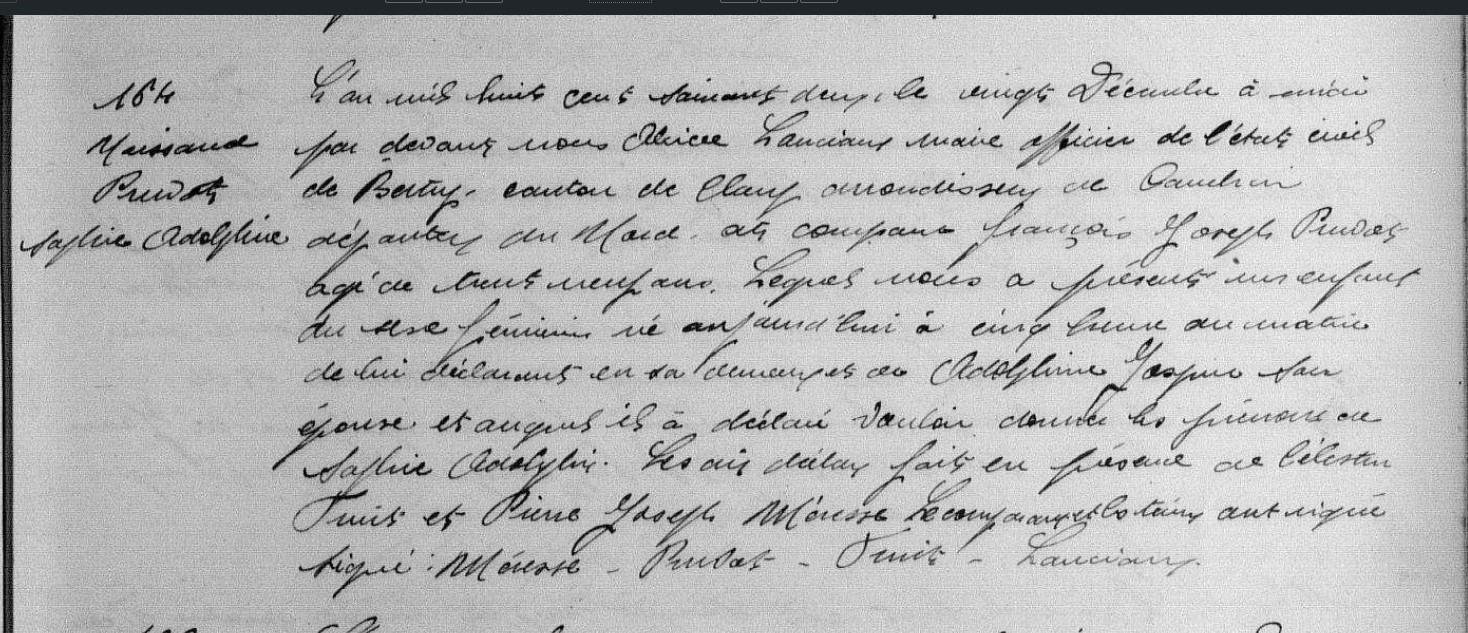 164
Naissance
Prudot
Sophie Adolphine
L'an mil huit cent soixante deux, le vingt Décembre à midi
par devant nous Lanciaux maire officier de l'état civil
de Bertry, canton de Clary arrondissem de
départem du Nord. ats comparu françois Joseph Prudot
agé de trente neuf ans. Lequel nous a présenté un enfant
du sexe féminin né aujourd'hui à cinq heure du matin
de lui déclarant en sa demeure et de Adolphine Gaspar son
épouse et auquel il à déclaré vouloir donner les prénoms de
Sophie Adolphine. Les dit déclar fait en présence de Célestin
Truit et Pierre Joseph Méresse Le comparant et les témoins ont signé
signé : Méresse - Prudot - Truit - Lanciaux.